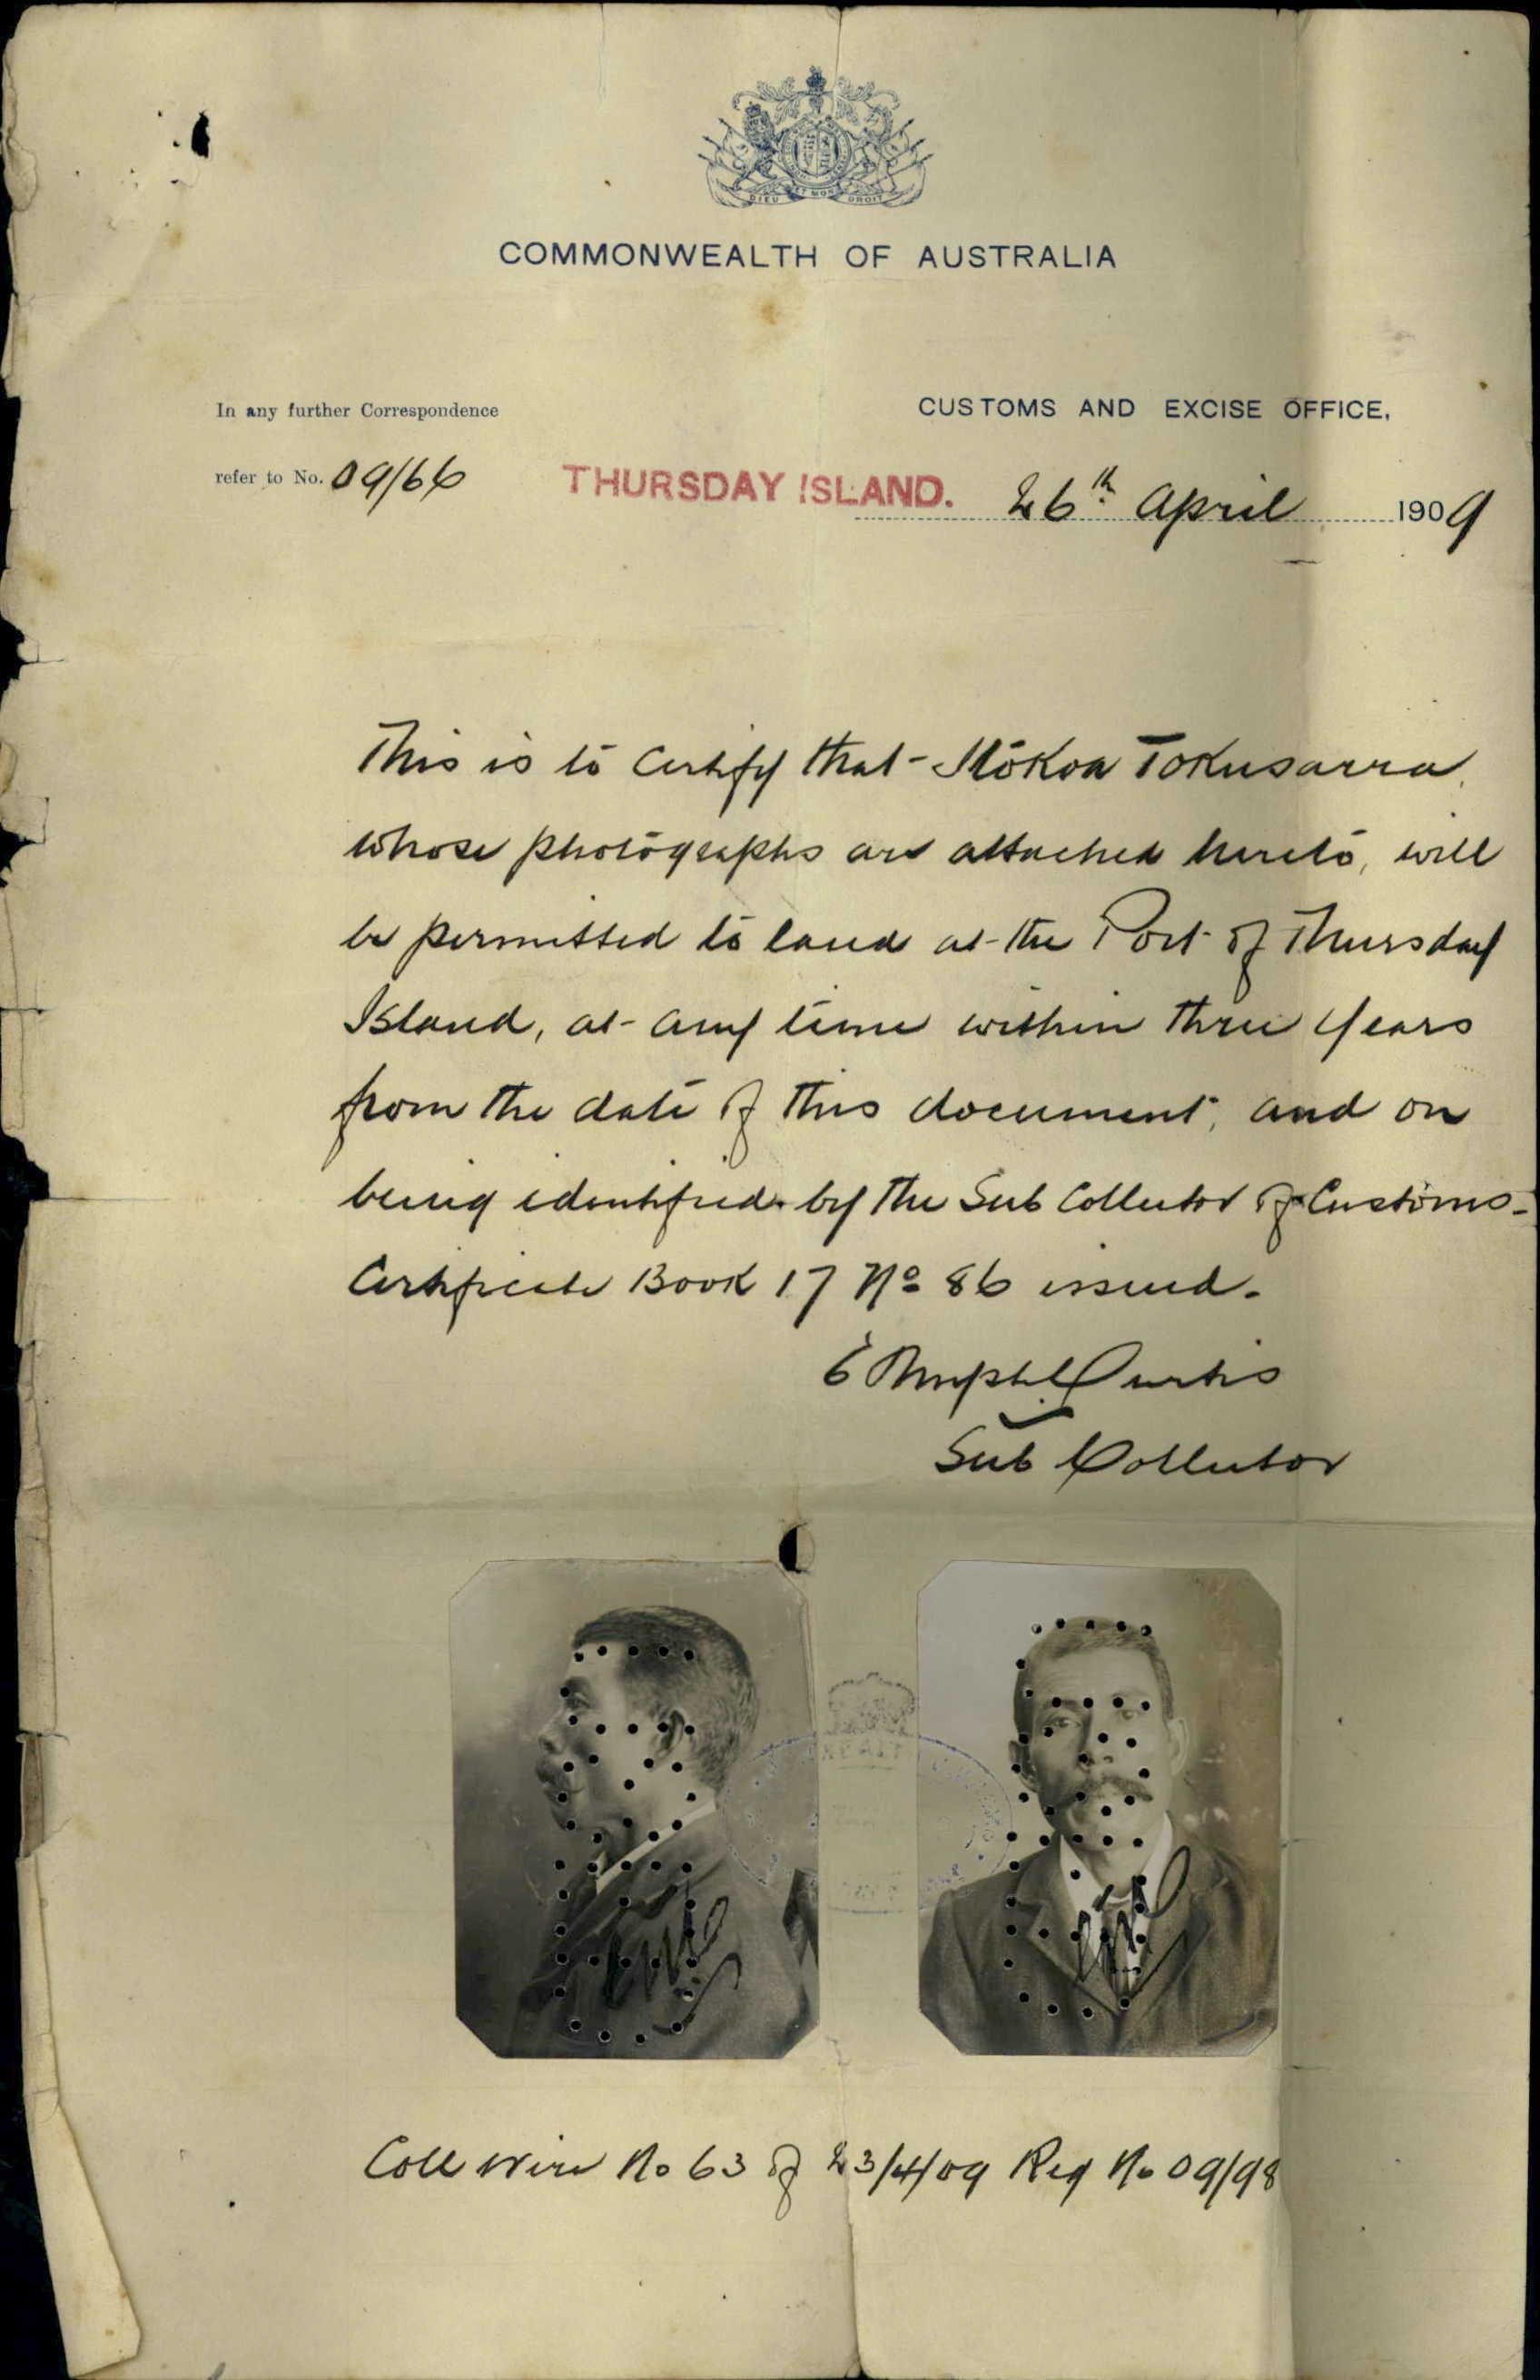 DIEU ET MON DROIT
COMMONWEALTH OF AUSTRALIA
In any further Correspondence
refer to No. 09/66
CUSTOMS AND EXCISE OFFICE,
THURSDAY ISLAND. 26th April 1909
This is to Certify that Itokoa Tokusarra
whose photographs are attached hereto, will
be permitted to land at the Port of Thursday
Island, at any time within three years
from the date of this document, and on
being identified by the Sub Collector of Customs-
Certificate Book 17 No 86 issued.
Curtis
Sub Collector
Coll Wire No 63 of 23/4/09 Reg No 09/98